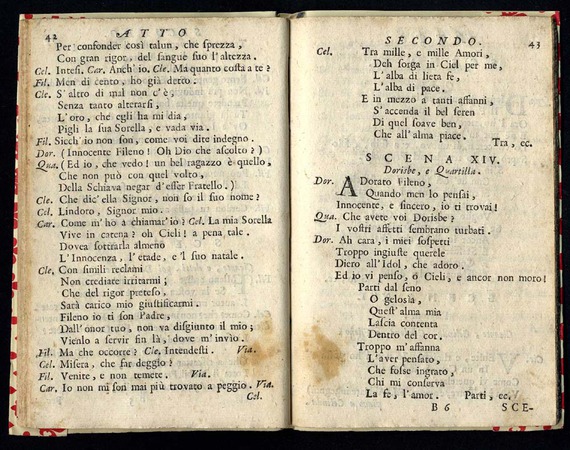 42
ATTO
Per confonder così talun, che sprezza,
Con gran rigor, del sangue suo l'altezza.
Cel. Intesi. Car. Anch' io. Cle. Ma quanto costa a te?
Fil. Men di cento, ho già detto.
Cle. S' altro di mal non c'è,
Senza tanto alterarsi,
L'oro, che egli ha mi dia,
Pigli la sua Sorella, e vada via.
Fil. Sicch' io non son, come voi dite indegno.
Dor. (Innocente Fileno! Oh Dio che ascolto?)
Qua. (Ed io, che vedo! un bel ragazzo è quello,
Che non può con quel volto,
Della Schiava negar d'esser Fratello.)
Cle. Che dic' ella Signor, non so il suo nome?
Cel. Lindoro, Signor mio.
Car. Come m' ho a chiamat' io? Cel. La mia Sorella
Vive in catena? oh Cieli! a pena tale.
Dovea sottrarla almeno
L' Innocenza, l' etade, e 'l suo natale.
Cle. Con simili reclami
Non crediate irritarmi;
Che del rigor preteso,
Sarà carico mio giustificarmi.
Fileno io ti son Padre,
Dall' onor tuo, non va disgiunto il mio;
Vienlo a servir fin là, dove m' invìo.
Fil. Ma che occorre? Cle. Intendesti. Via.
Cel. Misera, che far deggio?
Fil. Venite, e non temete. Via.
Car. Io non mi son mai più trovato a peggio. Via.
Cel.
SECONDO.
43
Cel. Tra mille, e mille Amori,
Deh sorga in Ciel per me,
L'alba di lieta fe,
L'alba di pace.
E in mezzo a tanti affanni,
S'accenda il bel seren
Di quel soave ben,
Che all' alma piace.
Tra, ec.
SCENA XIV.
Dorisbe, e Quartilla.
Dor. ADorato Fileno,
Quando men lo pensai,
Innocente, e sincero, io ti trovai!
Qua. Che avete voi Dorisbe?
I vostri affetti sembrano turbati.
Dor. Ah cara, i miei sospetti
Troppo ingiuste querele
Diero all' Idol, che adoro.
Ed io vi penso, ò Cieli, e ancor non moro!
Parti dal seno
O gelosìa,
Quest' alma mia
Lascia contenta
Dentro del cor.
Troppo m' affanna
L'aver pensato,
Che fosse ingrato,
Chi mi conserva
La fe, l'amor. Parti, ec.
B 6
SCE-